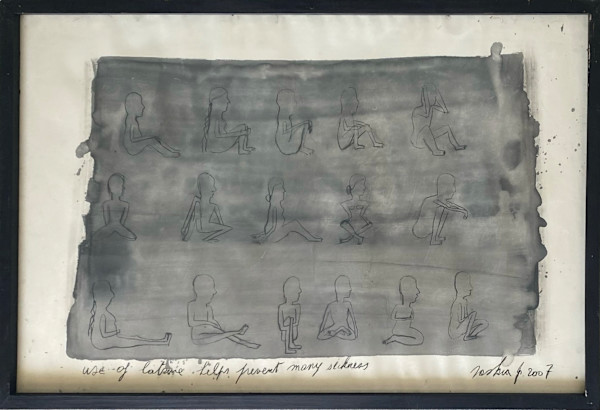 use of latrine helps prevent many sickness
2007